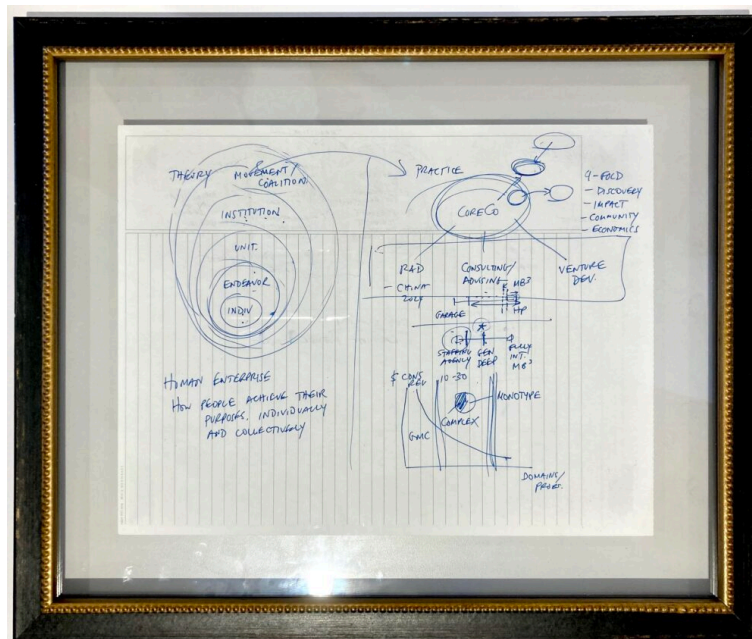 THEORY
MOVEMENT/
COALITION
INSTITUTION
UNIT.
ENDEAVOR
INDIV
HUMAN ENTERPRISE
HOW PEOPLE ACHIEVE THEIR
PURPOSES, INDIVIDUALLY
AND COLLECTIVELY
PRACTICE
CORECO
4-FOLD
- DISCOVERY
- IMPACT
- COMMUNITY
- ECONOMICS
R&D
- CHINA
CONSULTING/
ADVISING
VENTURE
DEV.
MB³
GARAGE
HP
STAFFING
AGENCY
GEN
DEEP
FULLY
INT.
MB³
$ CONS
REV
10-30
MONOTYPE
COMPLEX
GMC
DOMAINS/